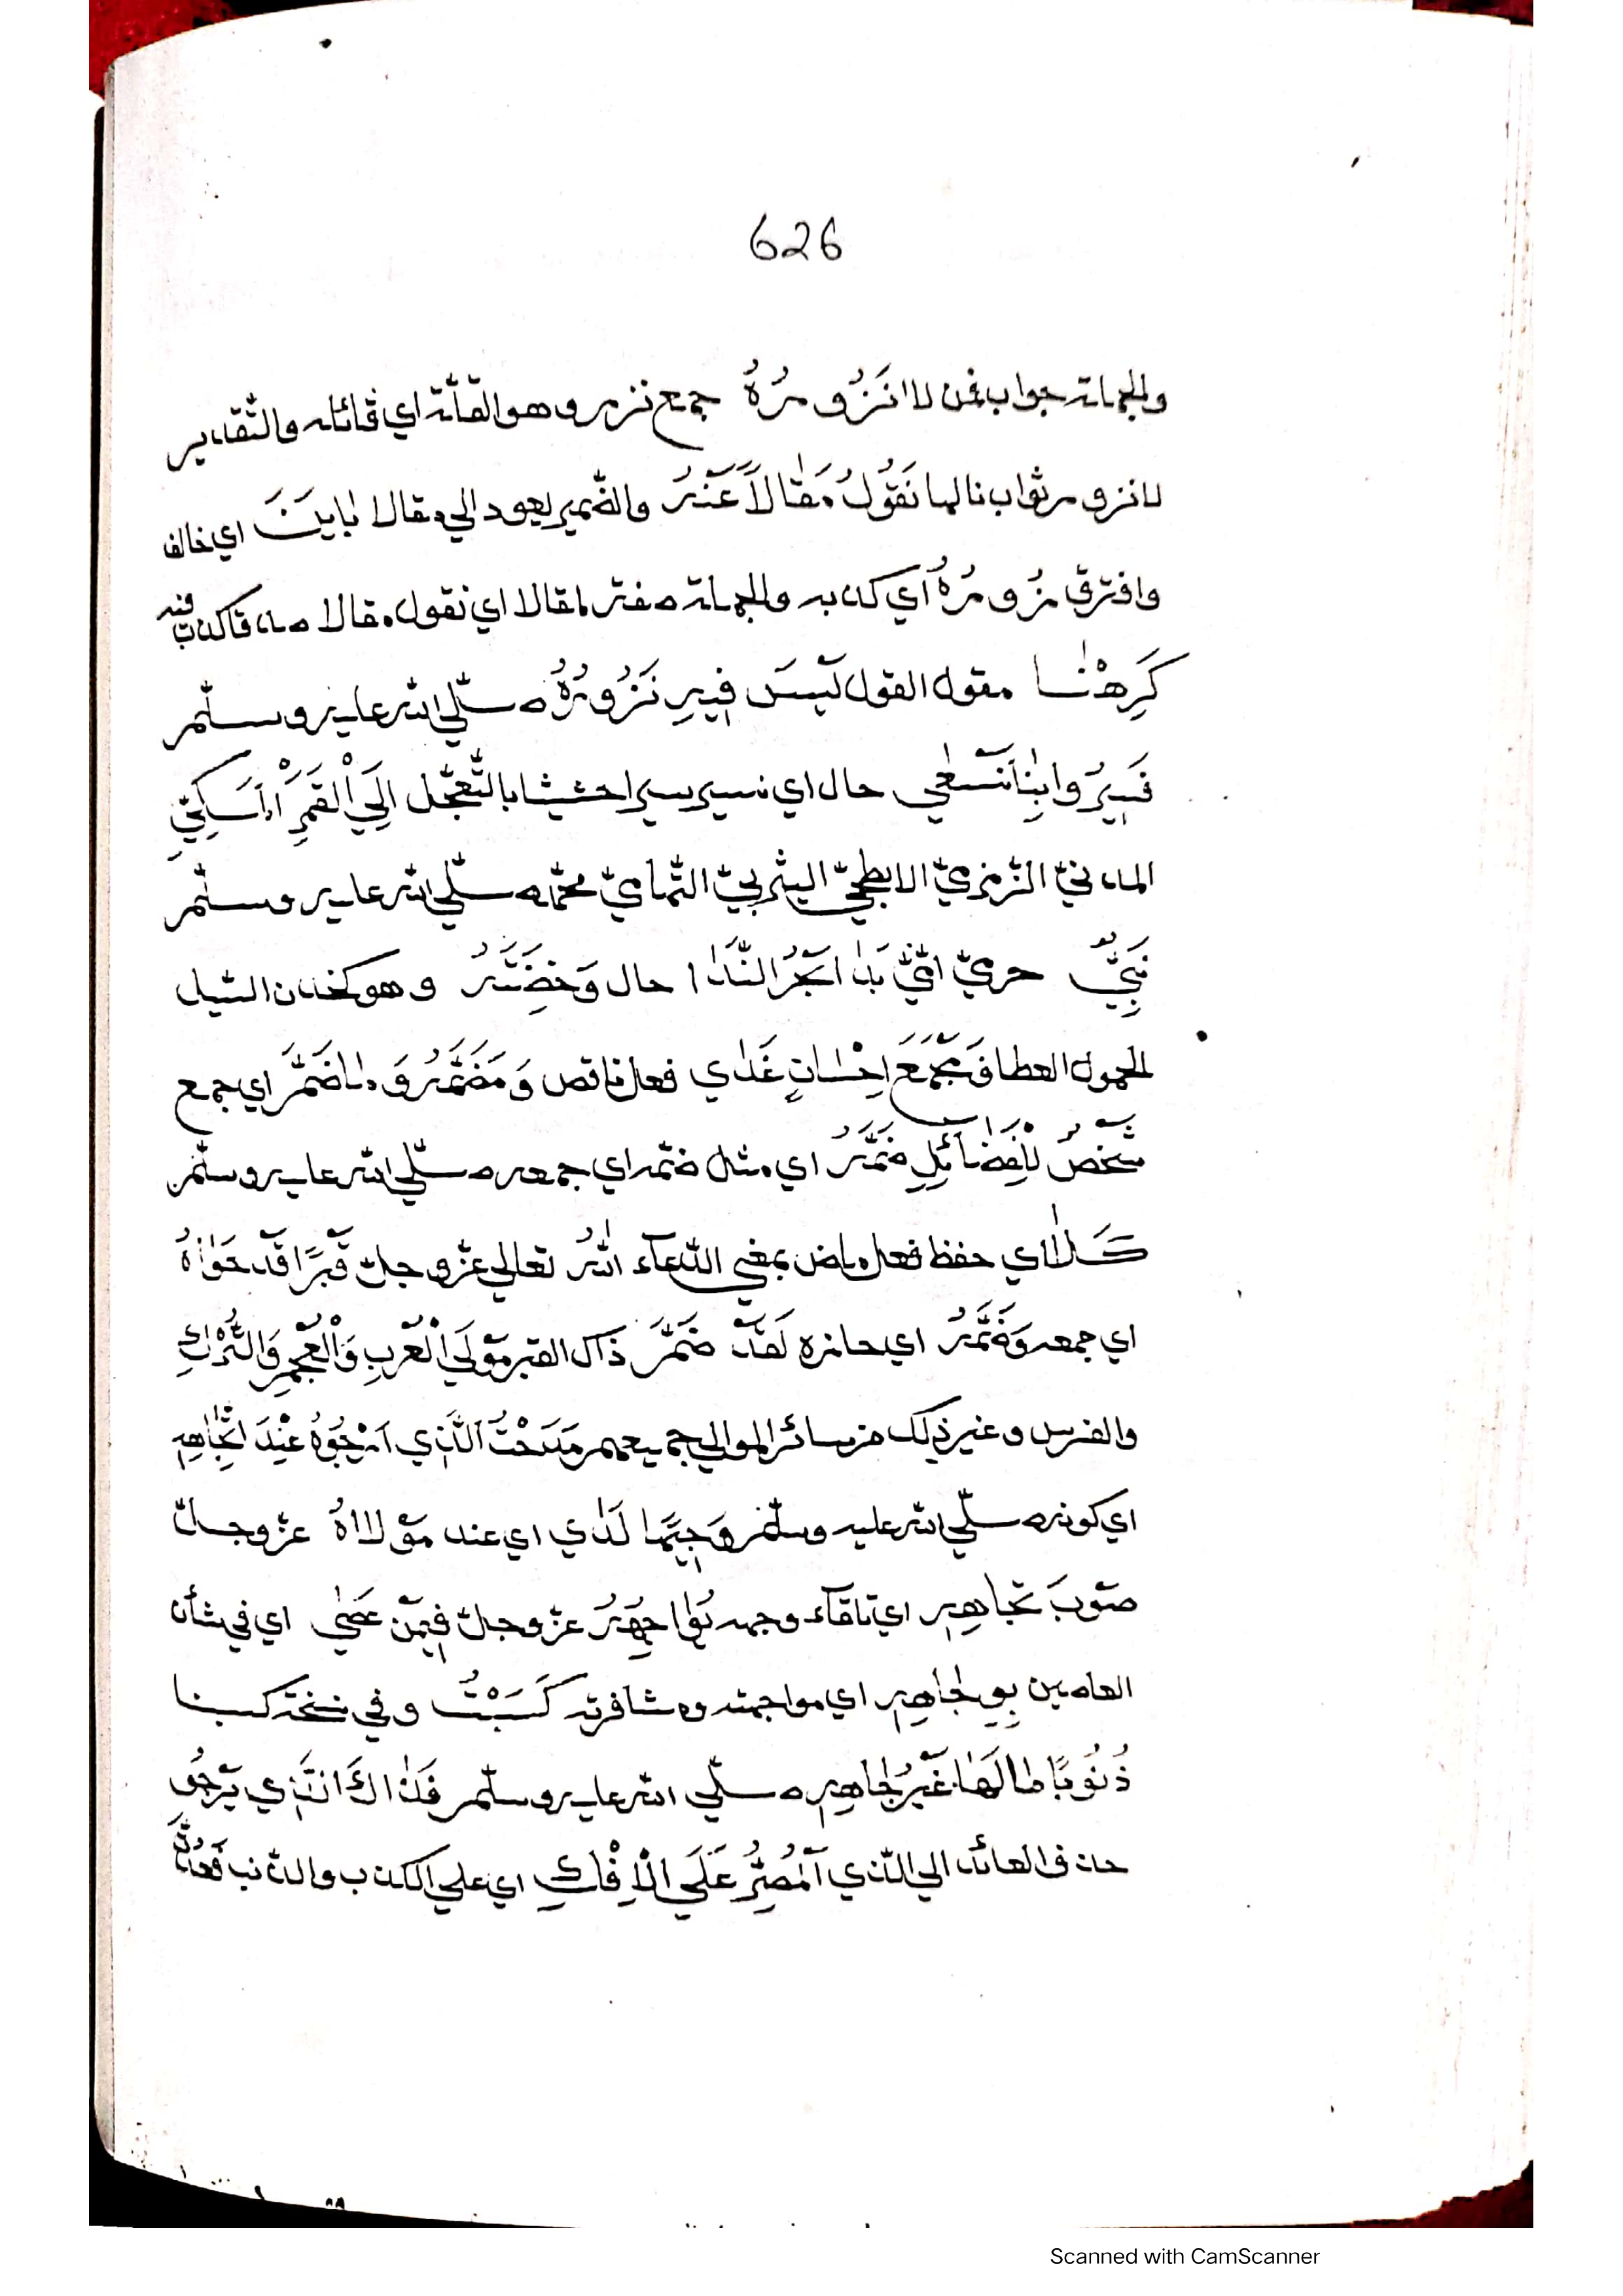 626
والجملة جواب فمن لا انَزُورُهُ جمع نزر وهو القلّة اي قائله والتّقدير
لا نزور ثواب نالها نَقُولُ مَقَالاً عَنْهُ والضّمير يعود الي مقالا بَايَنَ اي خالف
وافترق زُورُهُ اي كذبه والجملة صفة لمقالا اي نقول مقالا صدقا كذب فيه
كَرِهْنَا مقول القول لَيْسَ فِيهِ نَزُورُهُ صلّي الله عليه وسلّم
فَسِيرُوا بِنَا نَسْعَي حال اي نسير سيرا حثيثا بالتّعجّل اِلَي الْقَمَرِ الْمَكِّيِّ
المدنيّ الزّمزميّ الابطحيّ اليثربيّ التّهاميّ محمّد صلّي الله عليه وسلّم
نَبِيٌّ حرميّ امّيّ بَدَا بَحْرُ النَّدَا حال وَخِضَمُّهُ وهو كخدن السّيل
الحمول العطا وَمَجْمَعَ اِحْسَانٍ غَدَي فعل ناقص وَمَضَمُّهُ وَمَا ضَمَّ اي جمع
شَخْصٌ لِلْفَضَائِلِ ضَمُّهُ اي مثل ضمّه اي جمعه صلّي الله عليه وسلّم
كَلَا اي حفظ فعل ماض بمعني الدّعآء اللهُ تعالي عزّ وجلّ قَبْرًا قَدْ حَوَاهُ
اي جمعه وَضَمُّهُ اي حازه لَقَدْ ضَمَّ ذاك القبر مَوْلَي الْعُرْبِ وَالْعُجْمِ وَالتُّرْكِ
والفرس وغير ذلك من سائر الموالي جميعهم مَدَحْتُ الَّذِي اَرْجُوهُ عِنْدَ اتِّجَاهِهِ
اي كونه صلّي الله عليه وسلّم وَجِيهًا لَدَي اي عند مَوْلَاهُ عزّ وجلّ
صَوْبَ تُجَاهِهِ اي تلقآء وجهه يُوَاجِهُهُ عزّ وجلّ فِيمَنْ عَصَي اي في شأن
العاصين بِوِجَاهِهِ اي مواجهته ومشافهته كَسَبْتُ وفي نسخة كسبنا
ذُنُوبًا مَا لَهَا غَيْرُ جَاهِهِ صلّي الله عليه وسلّم فَذَاكَ الَّذِي يَرْجُو
حذف العائد الي الّذي اَلْمُصِرُّ عَلَي الْاِفْكِ اي علي الكذب والذّنب
Scanned with CamScanner